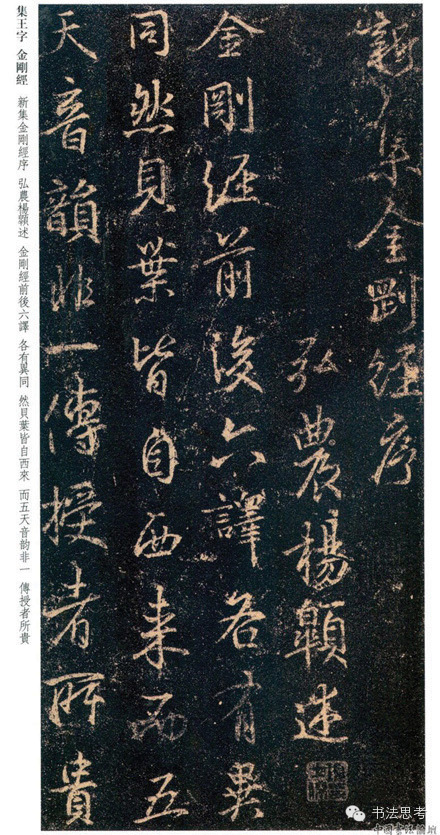 新集金剛經序
弘農楊顥述
金剛經前後六譯各有異
同然貝葉皆自西來而五
天音韻非一傳授者所貴
集王字 金剛經 新集金剛經序 弘農楊顥述 金剛經前後六譯 各有異同 然貝葉皆自西來 而五天音韵非一 傳授者所貴
书法思考